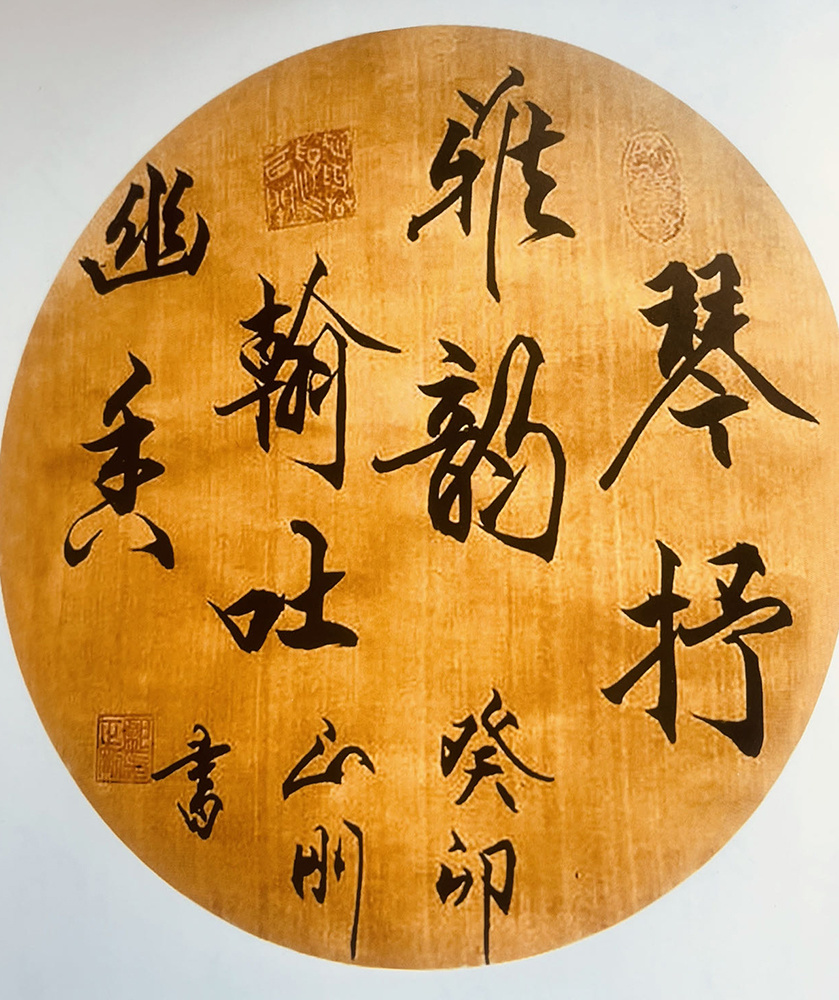 琴抒
雅韵
翰吐
幽香
癸卯
刚
书